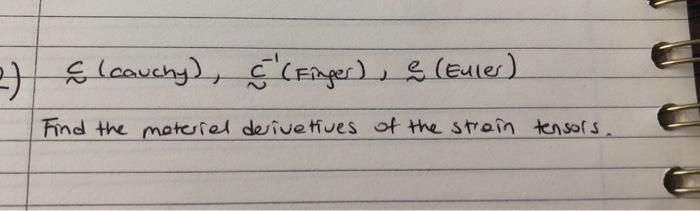 2) c (cauchy), c⁻¹ (Finger), e (Euler)
Find the material derivatives of the strain tensors.